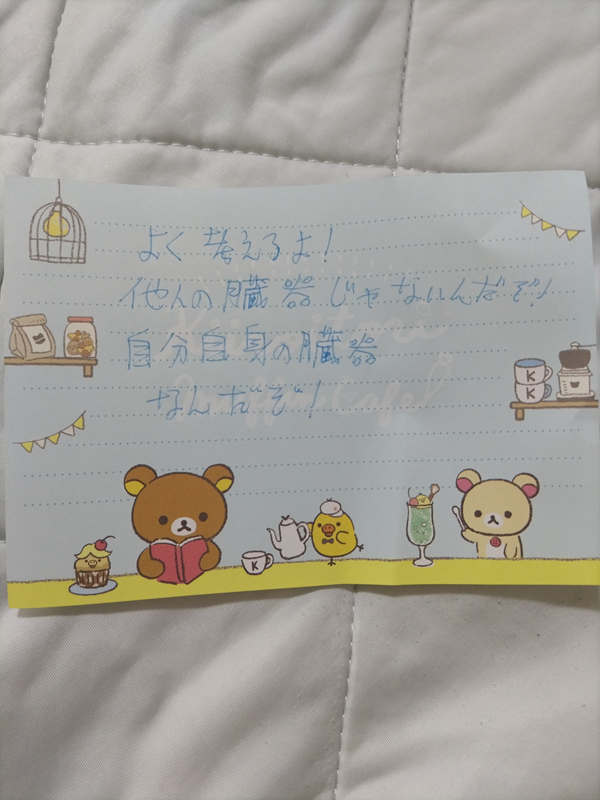 よく考えるよ!
他人の臓器じゃないんだぞ!
自分自身の臓器
なんだぞ!
K
K
K